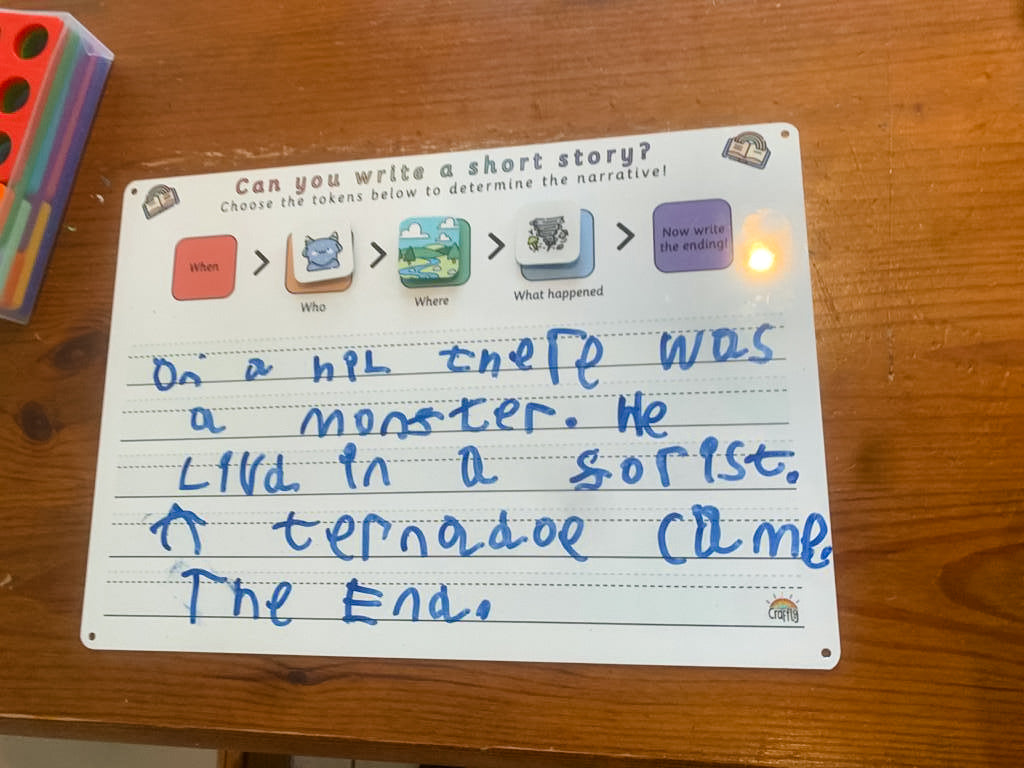 Can you write a short story?
Choose the tokens below to determine the narrative!
When > > > > Now write
the ending!
Who Where What happened
On a hiL there was
a monster. He
Livd in a forist.
A ternadoe came.
The End.
Craftly